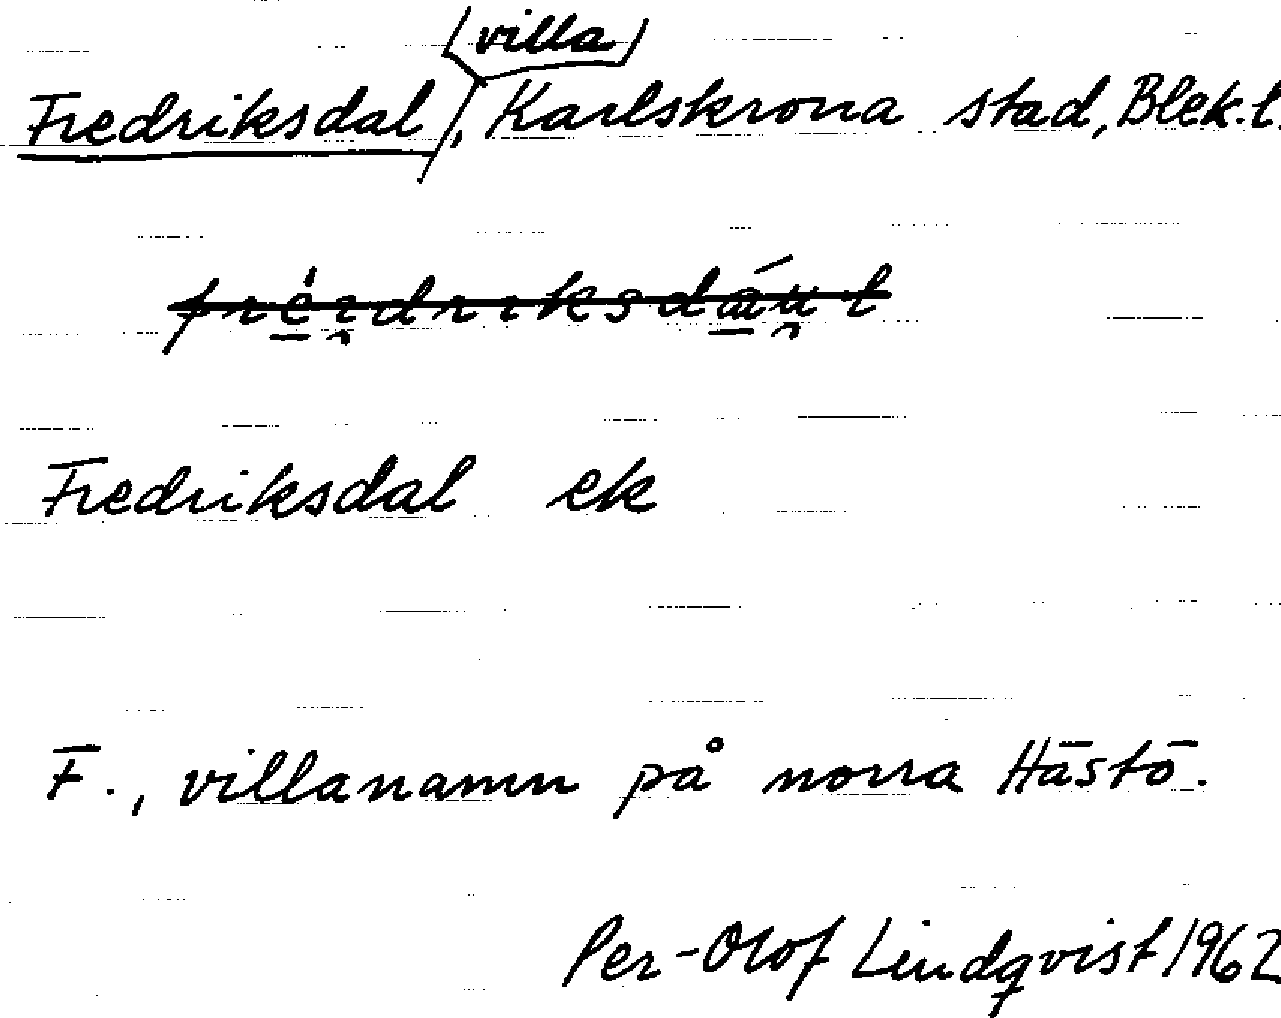 (villa)
Fredriksdal, Karlskrona stad, Blek. l.
Fredriksdal ek
F., villanamn på norra Hästö.
Per-Olof Lindqvist 1962